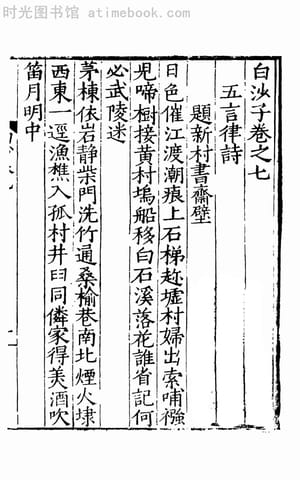 时光图书馆 atimebook.com
白沙子卷之七
五言律詩
題新村書齋壁
日色催江渡潮痕上石梯趂墟村婦出索哺襁
兒啼樹接黃村塢船移白石溪落花誰省記何
必武陵迷
茅棟依岩静柴門洗竹通桑榆巷南北煙火埭
西東一逕漁樵入孤村井臼同隣家得美酒吹
笛月明中